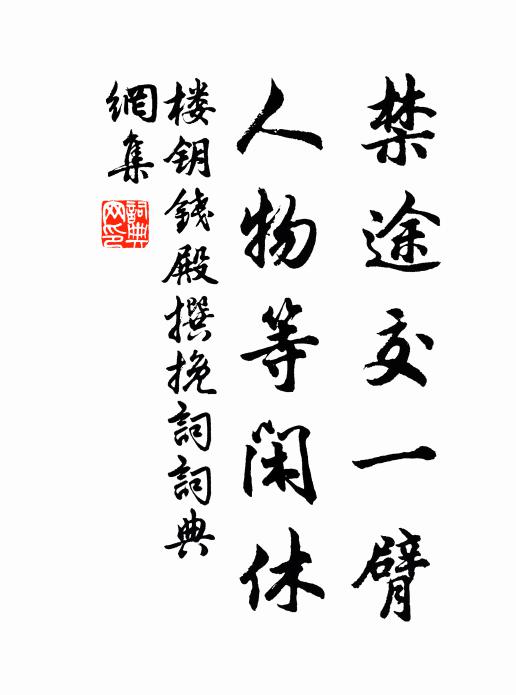 禁途交一臂
人物等閑休
楼钥錢殿撰挽詞詞典
網集
詞典
网印